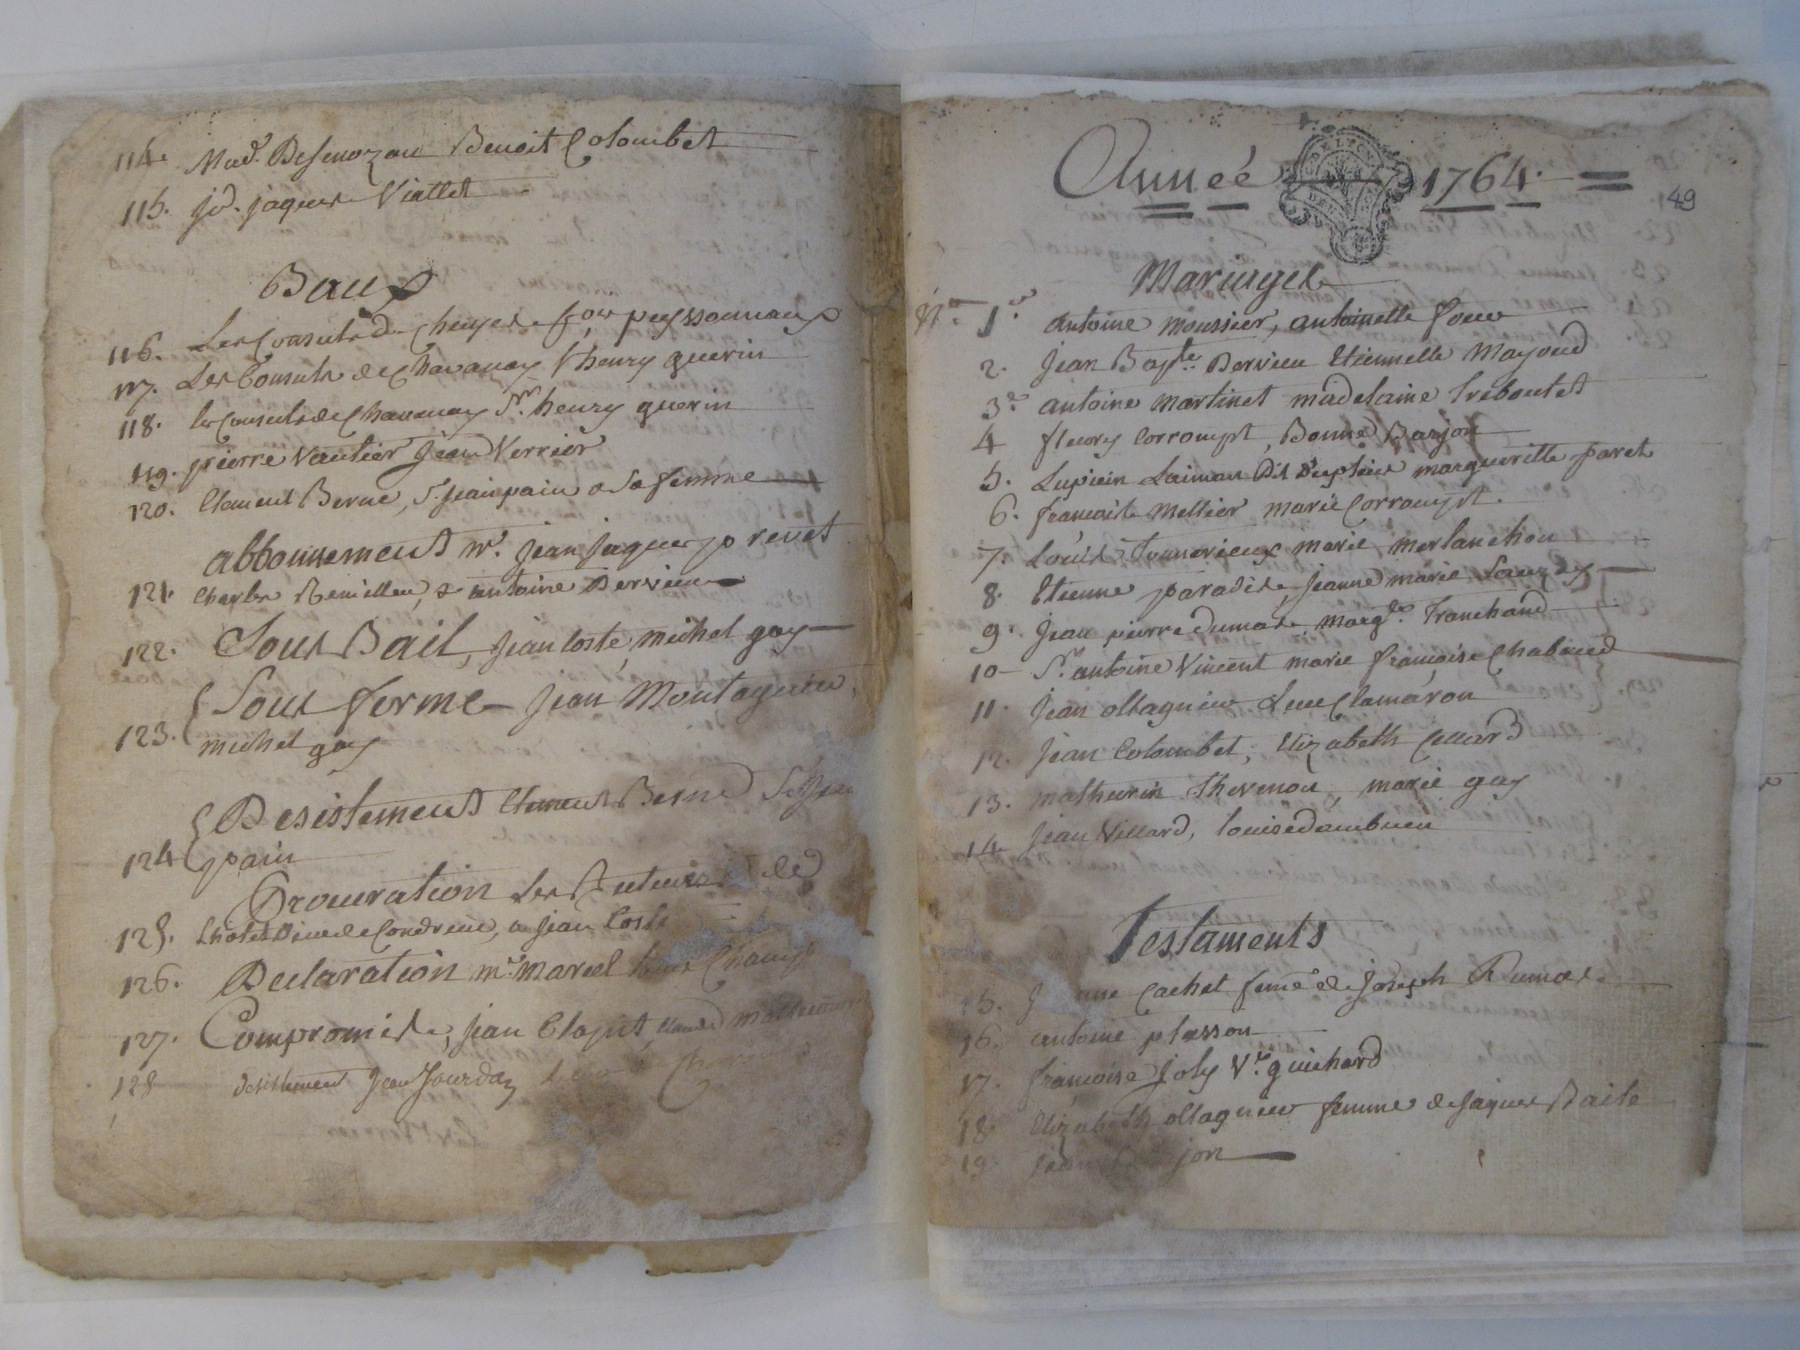 114. Mad.e Desenozan Benoit Colombet
115. jd. jaques Viallet
Baux
116. Les Consuls de Cheyer fçois peyssonnaux
117. Les Consuls de Chavanay Sr henry guerin
118. les Consuls de Chavanay Sr. henry guerin
119. pierre Vautier Jean Verrier
120. Clement Berne, Sr. jean pain & Sa femme
abbonnement mr. jean jaques prenet
121. Charles Remillieu, & antoine Dervieu
122. Sous Bail, jean Coste, michel gay
Sous ferme jean Montagnieu,
123. michel gay
Desistement Clement Berne Sr Jean
124 pain
Procuration Les Recteurs de
125. L'hotel Dieu de Condrieu, a jean Coste
126. Declaration mr. marcel
127. Compromis, jean Clapit, Claude
128 desistement Jean Jourdan
Année 1764.
49
Mariages
No. 1er antoine moussier, antoinette
2. Jean Bapte. Dervieu Etiennette Mayoud
3e. antoine martinet madelaine treboutet
4 fleury Corrompt, Bonne Barjon
5. Lupicin Laiman dit Duplein margueritte paret
6. francois mellier marie Corrompt.
7. Louis Tournerieux marie merlanchon
8. Etienne paradis, jeanne marie Sauzéy
9. Jean pierre dumas, margte. Tranchand
10 Sr. antoine Vincent marie francoise Chaboud
11. Jean ollagnier Luce Clamaron
12. Jean Colombet, Elizabeth Cellard
13. mathurin thevenon, marie gay
14 Jean Villard, louise dambuen
Testaments
15. Cachet feme de joseph Dumas
16. antoine plasson
17. françoise joly Ve. guichard
18. Elizabeth ollagnier femme de jaques Baile
19.